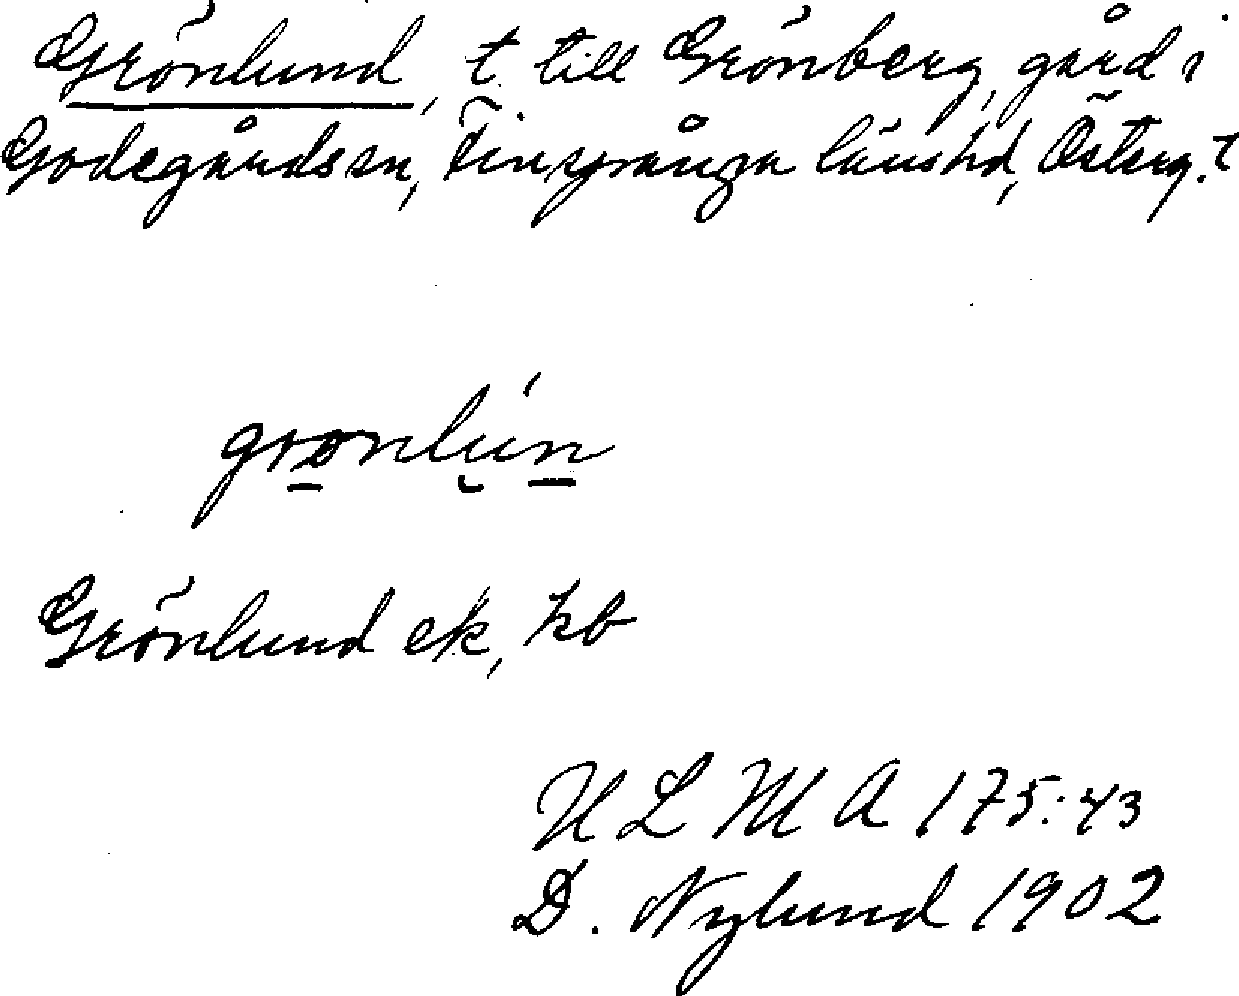 Grönlund, t. till Grönberg, gård i
Godegårds sn, Finspånga läns hd, Österg.
grønlún
Grönlund ek, kb
ULMA 175:43
D. Nylund 1902